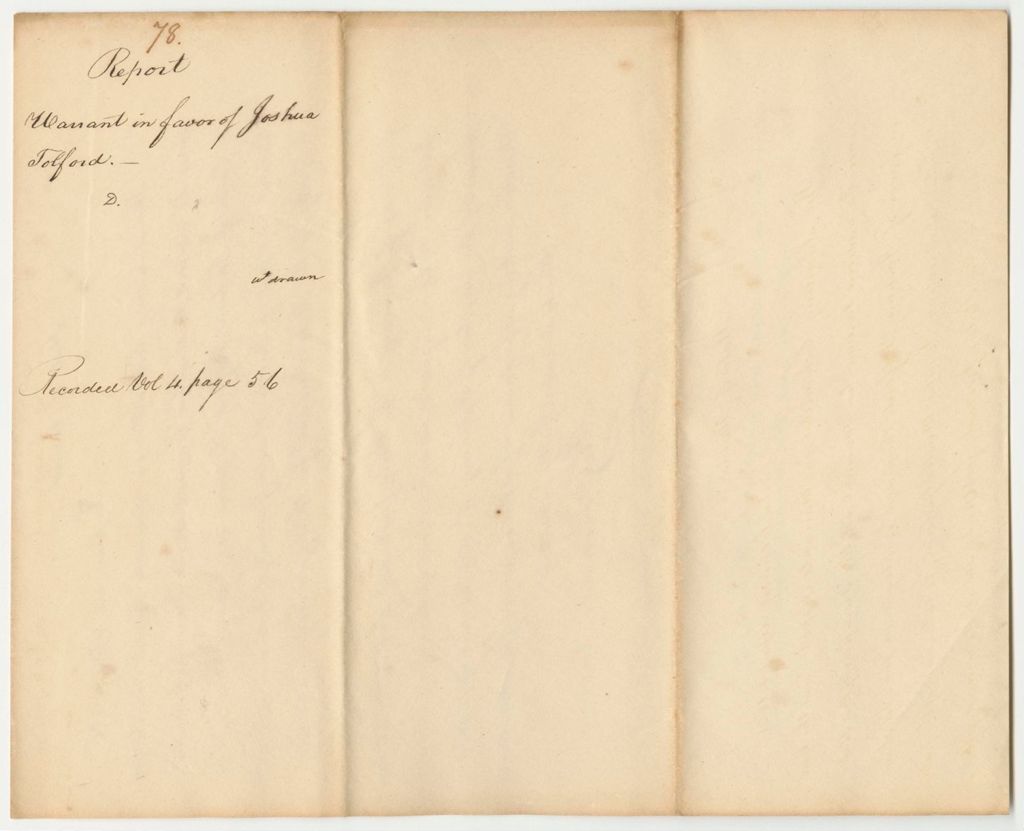 78.
Report
Warrant in favor of Joshua
Tolford. —
D.
wt drawn
Recorded Vol 4. page 56